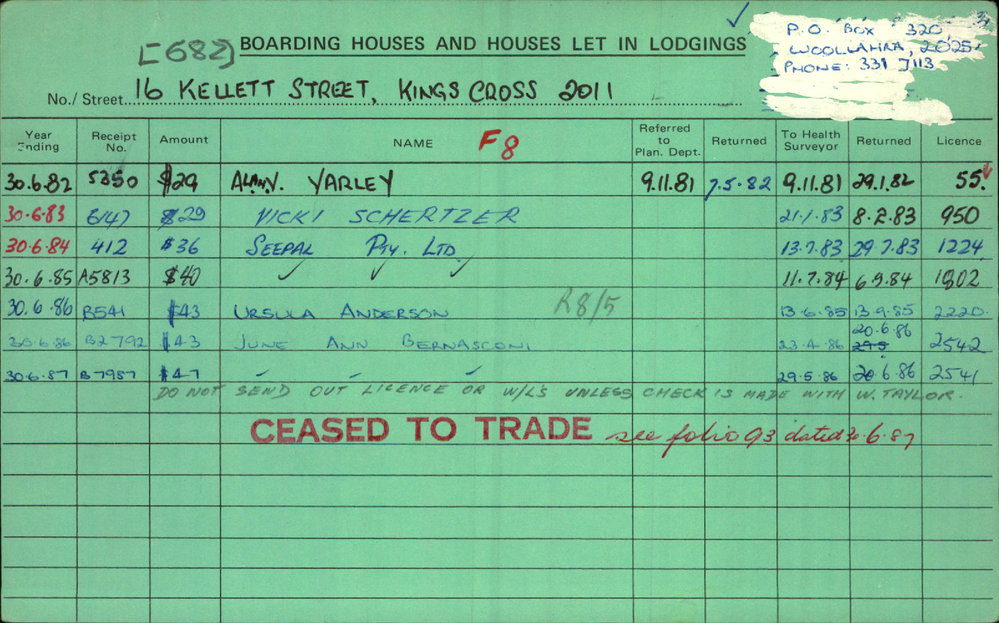 [682] BOARDING HOUSES AND HOUSES LET IN LODGINGS
P.O. BOX 320,
WOOLLAHRA, 2025.
PHONE: 331 7113
No./Street 16 KELLETT STREET, KINGS CROSS 2011
Year Ending Receipt No. Amount NAME F8 Referred to Plan. Dept. Returned To Health Surveyor Returned Licence
30.6.82 5350 $29 ALAN V. YARLEY 9.11.81 7.5.82 9.11.81 29.1.82 55.
30.6.83 6147 $29 VICKI SCHERTZER 21.1.83 8.2.83 950
30.6.84 412 $36 SEEPAL PTY. LTD. 13.7.83 29.7.83 1224
30.6.85 A5813 $40 ✓ ✓ ✓ 11.7.84 6.9.84 1802
30.6.86 B541 $43 URSULA ANDERSON R8/5 13.6.85 13.9.85 2220.
30.6.86 B2792 $43 JUNE ANN BERNASCONI 23.4.86 20.6.86 29.5 2542
30.6.87 B7987 $47 ✓ ✓ ✓ 29.5.86 20.6.86 2541
DO NOT SEND OUT LICENCE OR W/L'S UNLESS CHECK IS MADE WITH W. TAYLOR.
CEASED TO TRADE see folio 93 dated 30.6.87